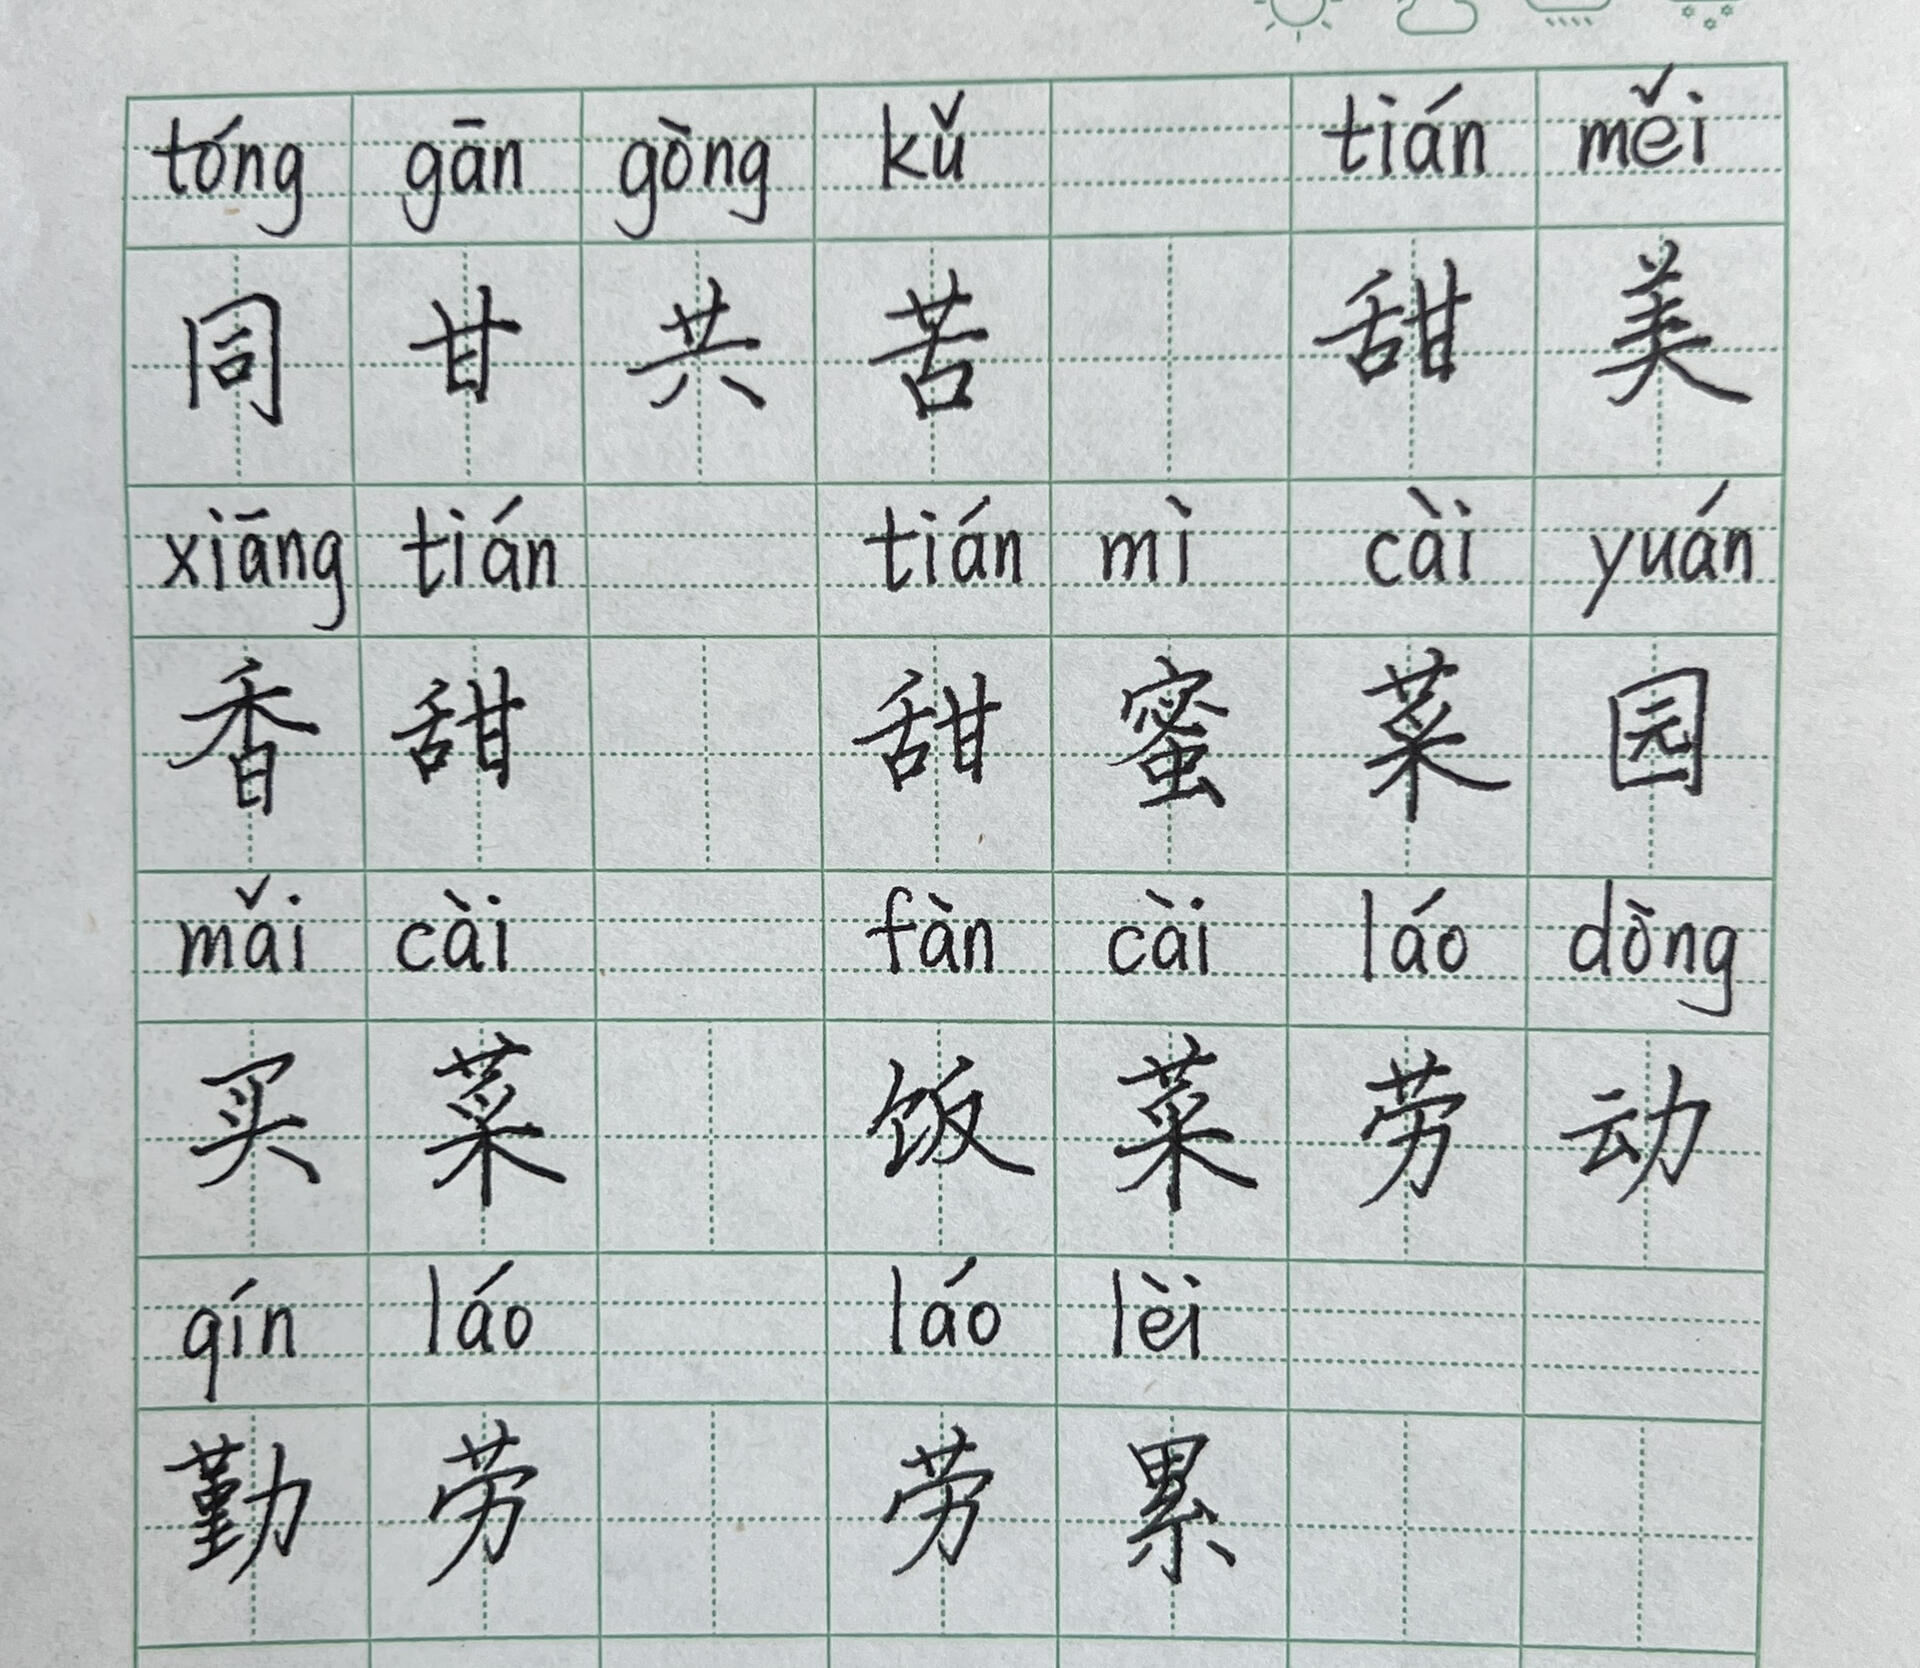 tóng gān gòng kǔ tián měi
同甘共苦 甜美
xiāng tián tián mì cài yuán
香甜 甜蜜菜园
mǎi cài fàn cài láo dòng
买菜 饭菜劳动
qín láo láo lèi
勤劳 劳累